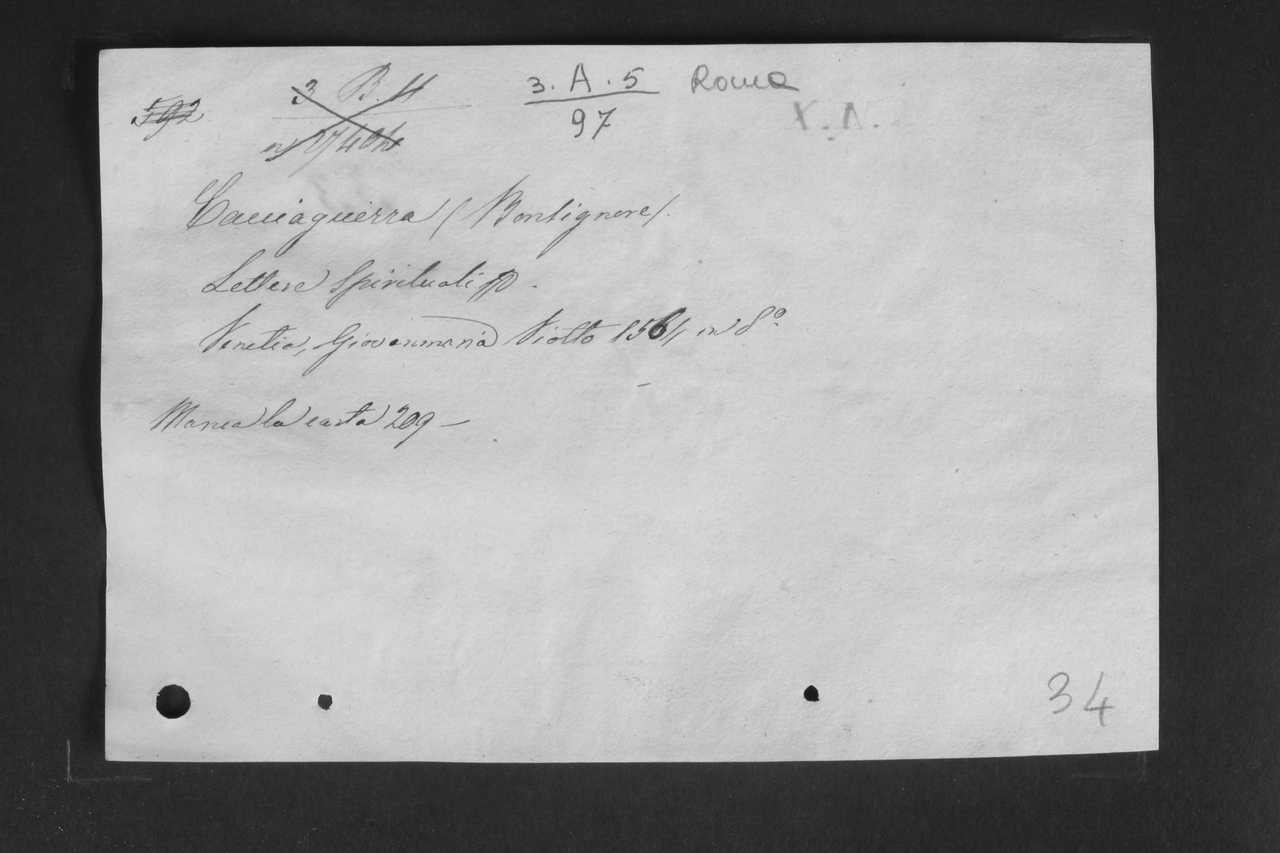 592 3 B. 4 3. A. 5 Roma
97 X. N.
Cacciaguerra (Bonsignore).
Lettere Spirituali
Venetia, Giovanmaria Viotto 1564 in 8º
Manca la carta 209 —
34